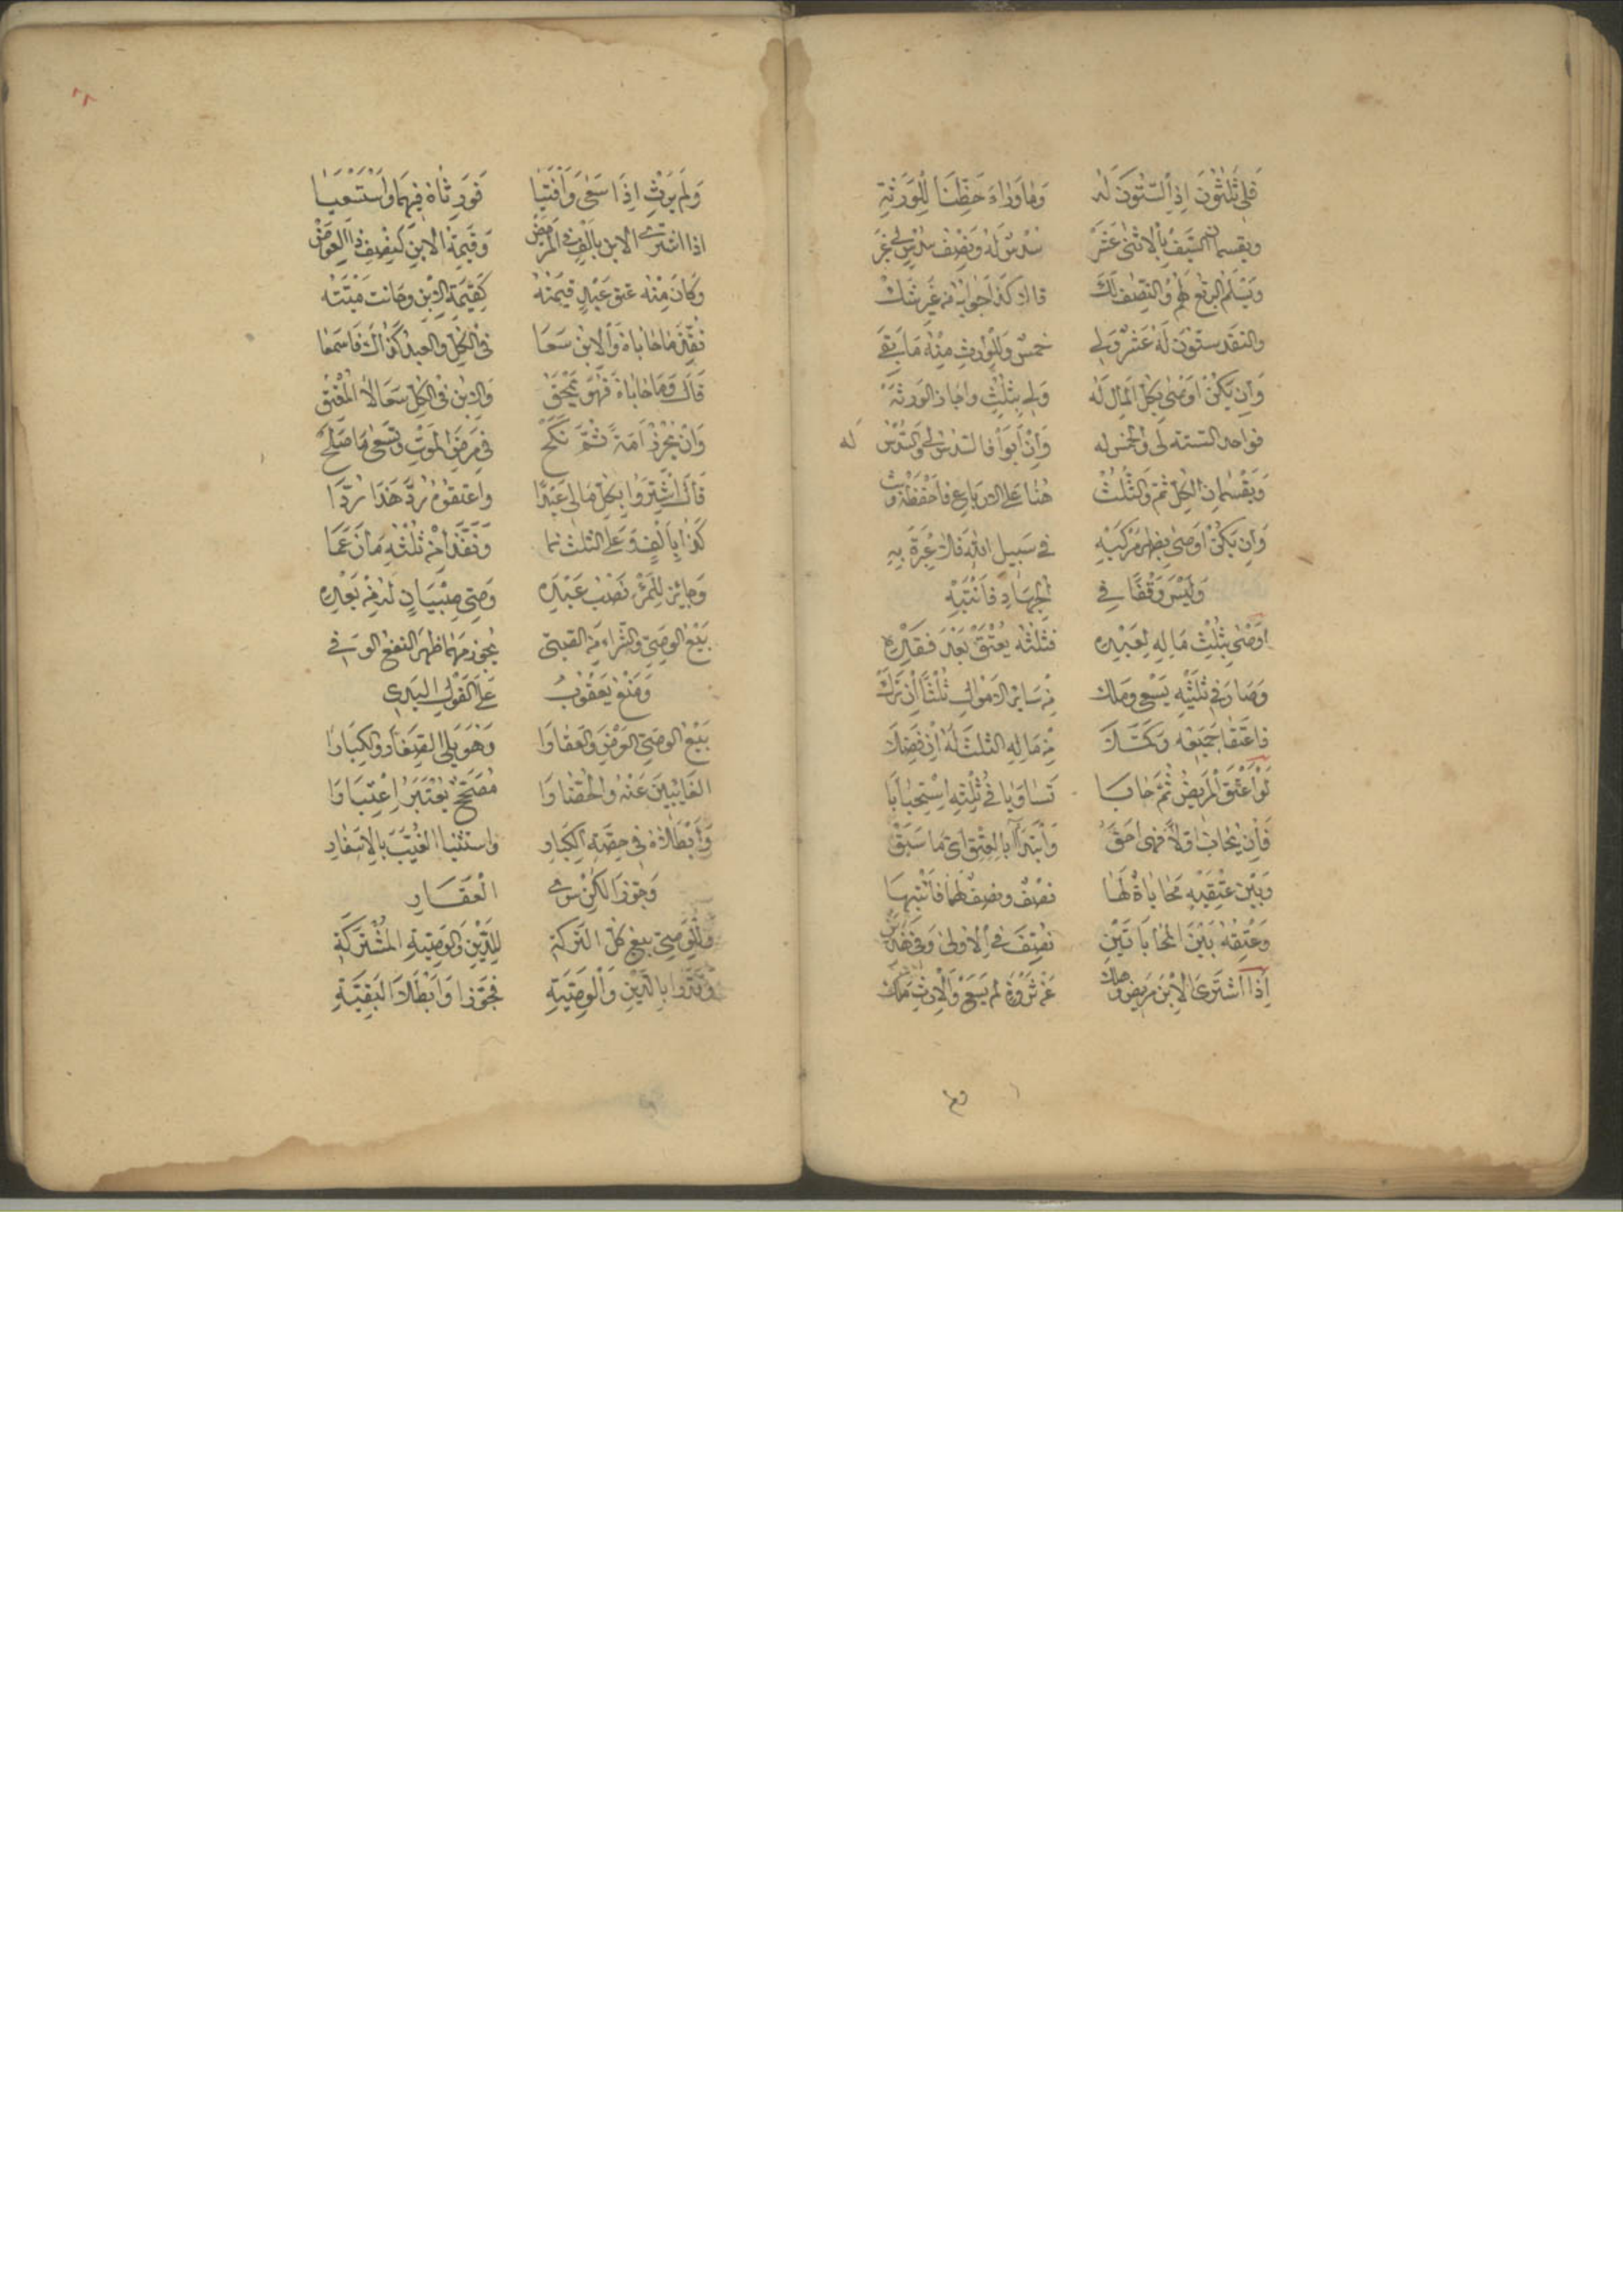 فلي ثلثون اذ الستون له وما وراء حظنا للورثة
ويقسمان السيف بالاثنى عشر سدس له ونصف سدس لي غبر
ويسلم الربع لهم والنصف لك قالا كذا جوابه من غير شك
والنقد ستون له عشر ولي خمس وللوارث منه ما بقي
وان يكن اوصى بكل المال له ولي بثلث واجاز الورثة
فواحد الستة لي والخمس له وان ابوا فالسدس لي والسدس له
ويقسمان الكل ثم والثلث هنا على الارباع فاحفظه وث
وان يكن اوصى بظهر مركبه في سبيل الله فلا عبرة به
وليس وقفا في الجهاد فانتبه
اوصى بثلث ماله لعبده فثلثه يعتق بعد فقده
وصار في ثلثيه يسعى وملك من سائر الاموال ثلثا ان ترك
فاعتقا جميعه وكملا من ماله الثلث له ان فضلا
لو اعتق المريض ثم حابا تساويا في ثلثه استحبابا
فان يحاب اولا فهي احق وابتدآ بالعتق اي ما سبق
وبين عتقيه محاباة لها نصف ونصف لهما فانتبها
وعتقه بين المحاباتين نصف في الاولى وفي
اذا اشترى الابن مريض وهلك عن ثروة لم يسع والارث ملك
ولم يرث اذا سعى وافتيا فورثاه فيهما واستسعيا
اذا اشترى الابن بالف في المرض وقيمة الابن كنصف ذا العوض
وكان منه عتق عبد قيمته كقيمة الابن وحانت ميتته
نفذ ما حاباه والابن سعا في الكل والعبد كذاك فاسمعا
قالا وما حاباه فهو يمحق والابن في الكل سعا لا المعتق
وان يحرر امة ثم نكح في مرض الموت وتسعى ما صلح
قال اشتروا بكل مالي عبدا واعتقوه رد هذا ردا
كذا بالف وعلى الثلث نما ونفذا من ثلثه ما زعما
وجائز للمرء نصب عبده وصي صبيان له من بعده
بيع الوصي والشراء من الصبي يجوز مهما ظهر النفع الوفي
ومنع يعقوب على القول
بيع الوصي العرض والعقارا وهو يلي الصغار والكبارا
الغايبين عنه والحضارا مصحح يعتبر اعتبارا
وابطلاه في حصة الكبار واستثنيا الغيب بالاسفار
وجوزا لكن سوى العقار
وللوصي بيع كل التركة للدين والوصية المشتركة
وقدرا بالدين والوصية فجوزا وابطلا البقية